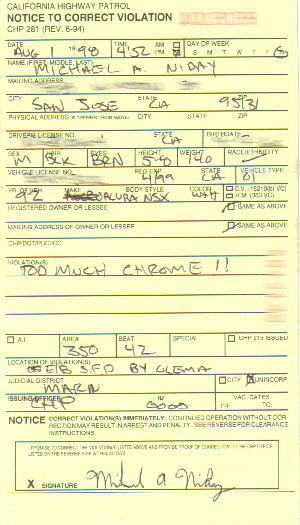 CALIFORNIA HIGHWAY PATROL
NOTICE TO CORRECT VIOLATION
CHP 281 (REV. 6-94)
DATE TIME AM PM DAY OF WEEK
AUG 1 98 4:52 S M T W T F S
NAME (FIRST, MIDDLE, LAST)
MICHAEL A. NIDAY
MAILING ADDRESS
CITY STATE ZIP
SAN JOSE CA 95131
PHYSICAL ADDRESS (IF DIFFERENT FROM ABOVE) CITY STATE ZIP
DRIVERS LICENSE NO. STATE BIRTHDATE
CA
SEX HAIR EYES HEIGHT WEIGHT RACE/ETHNICITY
M BLK BRN 5-8 140
VEHICLE LICENSE NO. REG EXP STATE VEHICLE TYPE
4/99 CA 01
YR. OF VEH. MAKE BODY STYLE COLOR C.V. (15210(b) VC)
92 ACURA NSX WHI H.M. (353 VC)
REGISTERED OWNER OR LESSEE SAME AS ABOVE
MAILING ADDRESS OF OWNER OR LESSEE SAME AS ABOVE
CHP/DOT/PUC/ICC
VIOLATION(S)
TOO MUCH CHROME !!
A.I. AREA BEAT SPECIAL CHP 215 ISSUED
350 42
LOCATION OF VIOLATION(S)
EB S.F.D BY OLEMA
JUDICIAL DISTRICT CITY UNINCORP.
MARIN
ISSUING OFFICER ID VAC. DATES
CHP 0000
NOTICE CORRECT VIOLATION(S) IMMEDIATELY. CONTINUED OPERATION WITHOUT COR-
RECTION MAY RESULT IN ARREST AND PENALTY. SEE REVERSE FOR CLEARANCE
INSTRUCTIONS.
I PROMISE TO CORRECT THE VIOLATION(S) LISTED ABOVE AND PROVIDE PROOF OF CORRECTION TO THE CHP OFFICE
LISTED ON THE REVERSE SIDE WITHIN DAYS
X SIGNATURE Michael A Niday